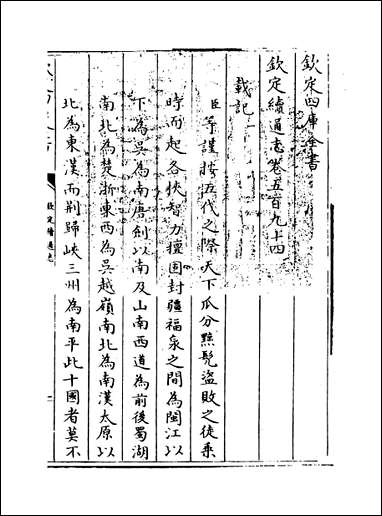 欽定四庫全書
欽定續通志卷五百九十四
載記
臣等謹按五代之際天下瓜分黥髠盜販之徒乘
時而起各挾智力擅固封疆福泉之間為閩江以
下為吳為南唐劍以南及山南西道為前後蜀湖
南北為楚浙東西為吳越嶺南北為南漢太原以
北為東漢而荆歸峽三州為南平此十國者莫不
欽定續通志